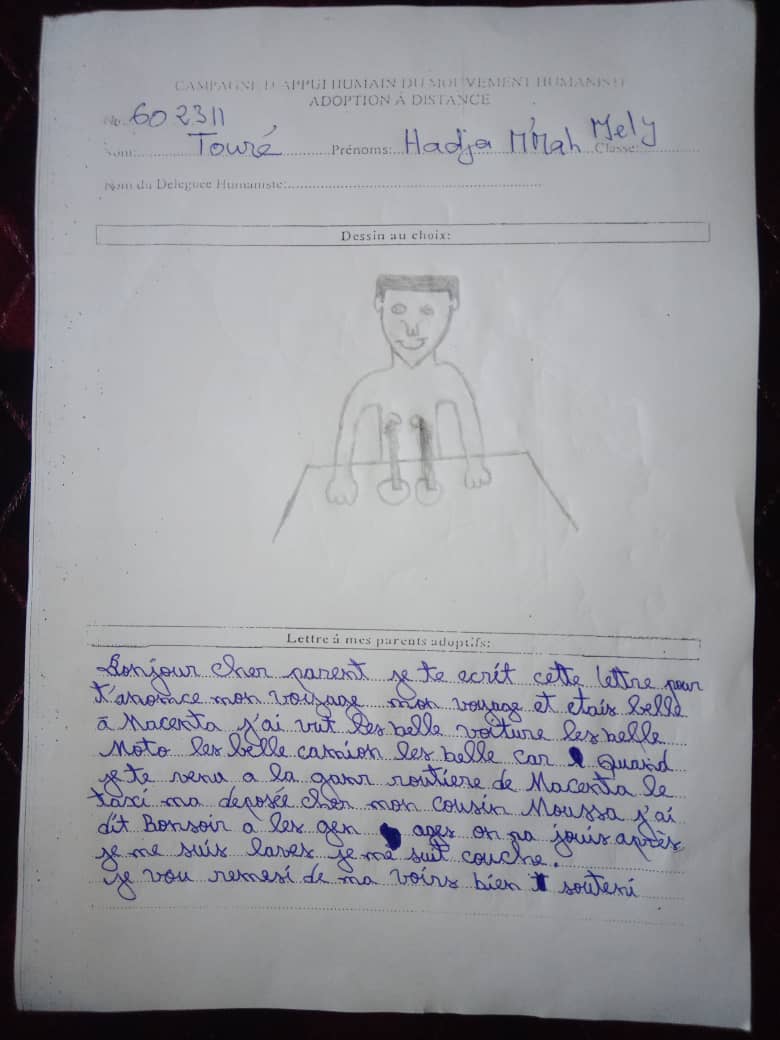 CAMPAGNE D'APPUI HUMAIN DU MOUVEMENT HUMANISTE
ADOPTION À DISTANCE
No: 602311
Nom: Touré Prénoms: Hadja M'Mah Mely Classe:
Nom du Deleguee Humaniste:
Dessin au choix:
Lettre à mes parents adoptifs:
Bonjour cher parent je te ecrit cette lettre pour
t'anomce mon voiyage mon voyage et etais belle
à Macenta j'ai vut les belle voiture les belle
Moto les belle camion les belle car Quand
je te venu a la garr routiere de Macenta le
taxi ma deposée cher mon cousin Moussa j'ai
dit Bonsoir a les gen ages on na jouis après
je me suis lares je me suit couche.
je vou remesi de ma voirs bien souteni